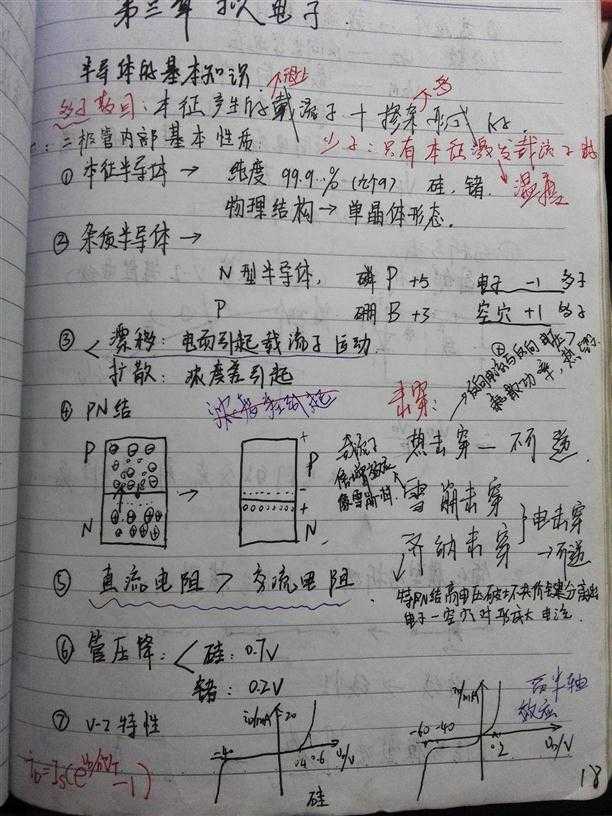 第三章 拟人电子
半导体的基本知识
多子数目：本征产生的载流子+掺杂形成
三极管内部基本性质：
少子：只有本征激发载流子
温度
① 本征半导体→ 纯度 99.9..% (九个9) 硅，锗
物理结构→单晶体形态.
② 杂质半导体→
N型半导体， 磷 P +5 电子 -1 多子
P 硼 B +3 空穴 +1 多子
③ 漂移：电场引起载流子运动
扩散：浓度差引起
④ PN结
击穿：
热击穿— 不可逆.
雪崩击穿
齐纳击穿
电击穿
P
N
P
N
+
-
+
⑤ 直流电阻 > 交流电阻
电子-空穴对形成大电流.
⑥ 管压降： 硅：0.7V
锗：0.2V
⑦ V-I 特性
iD/mA 20
.4 .6 uD/V
硅
-60 -40
.2 uD/V
18